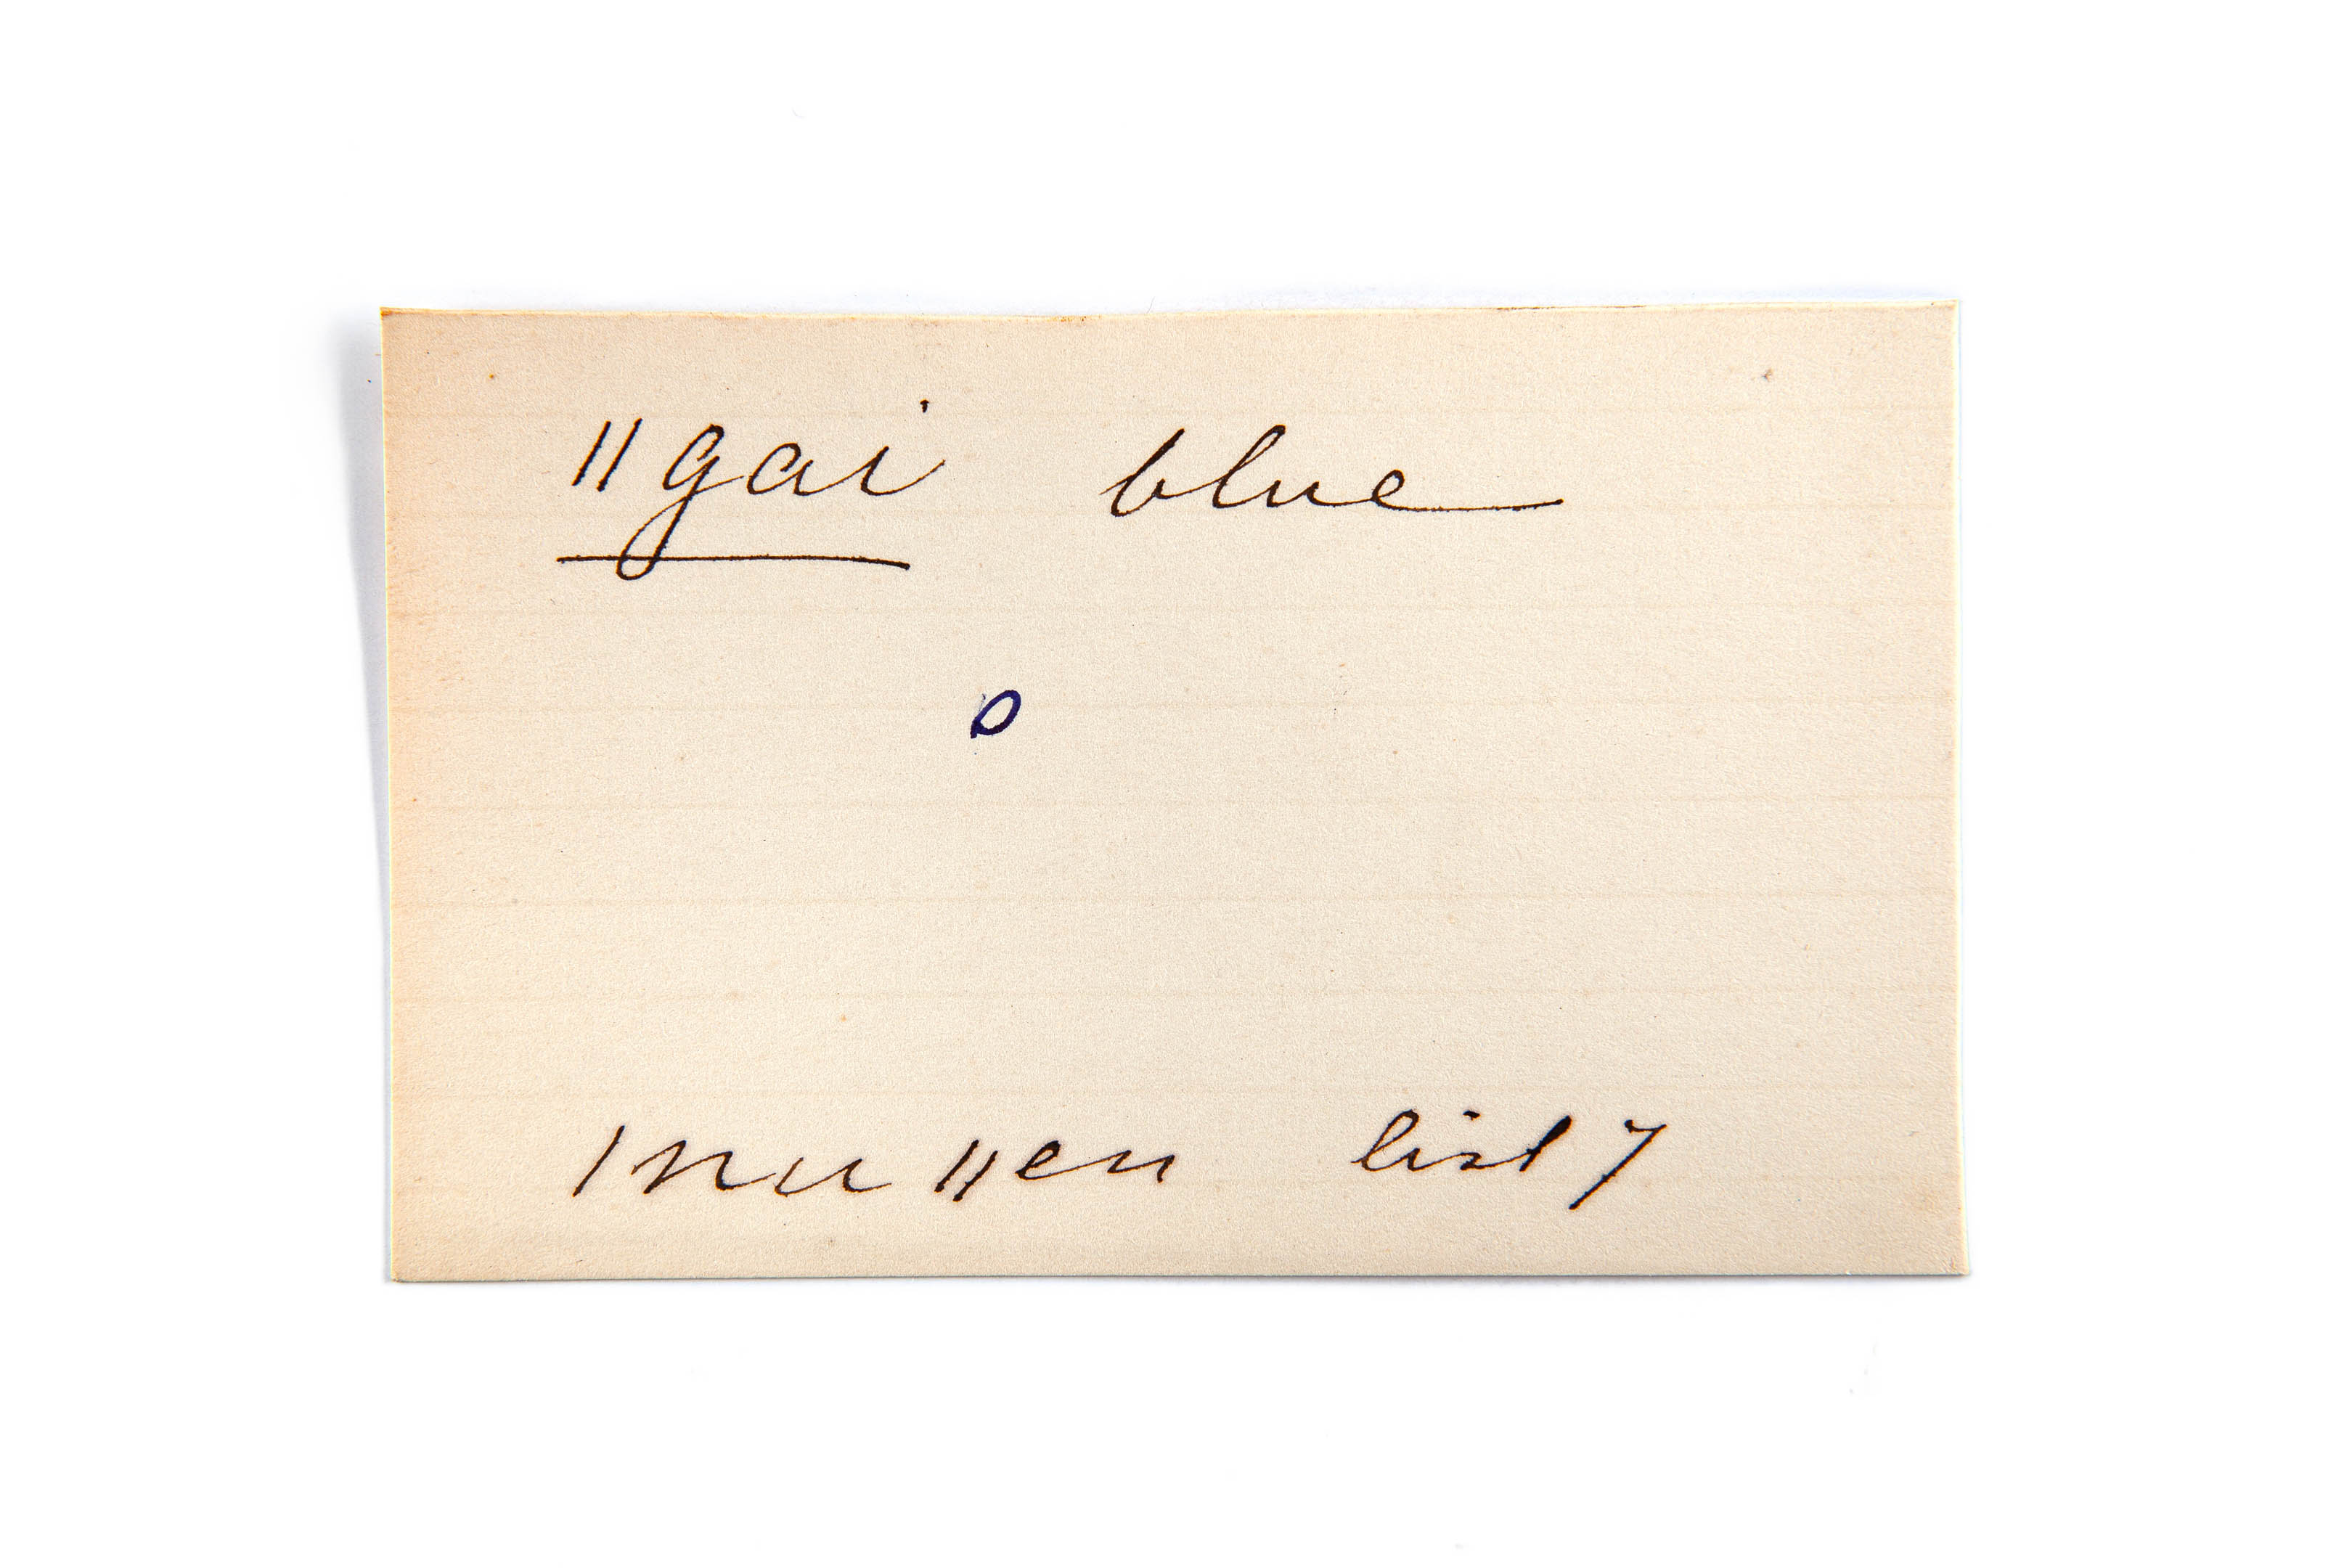 ||gai blue
o
|nu ||en list 7